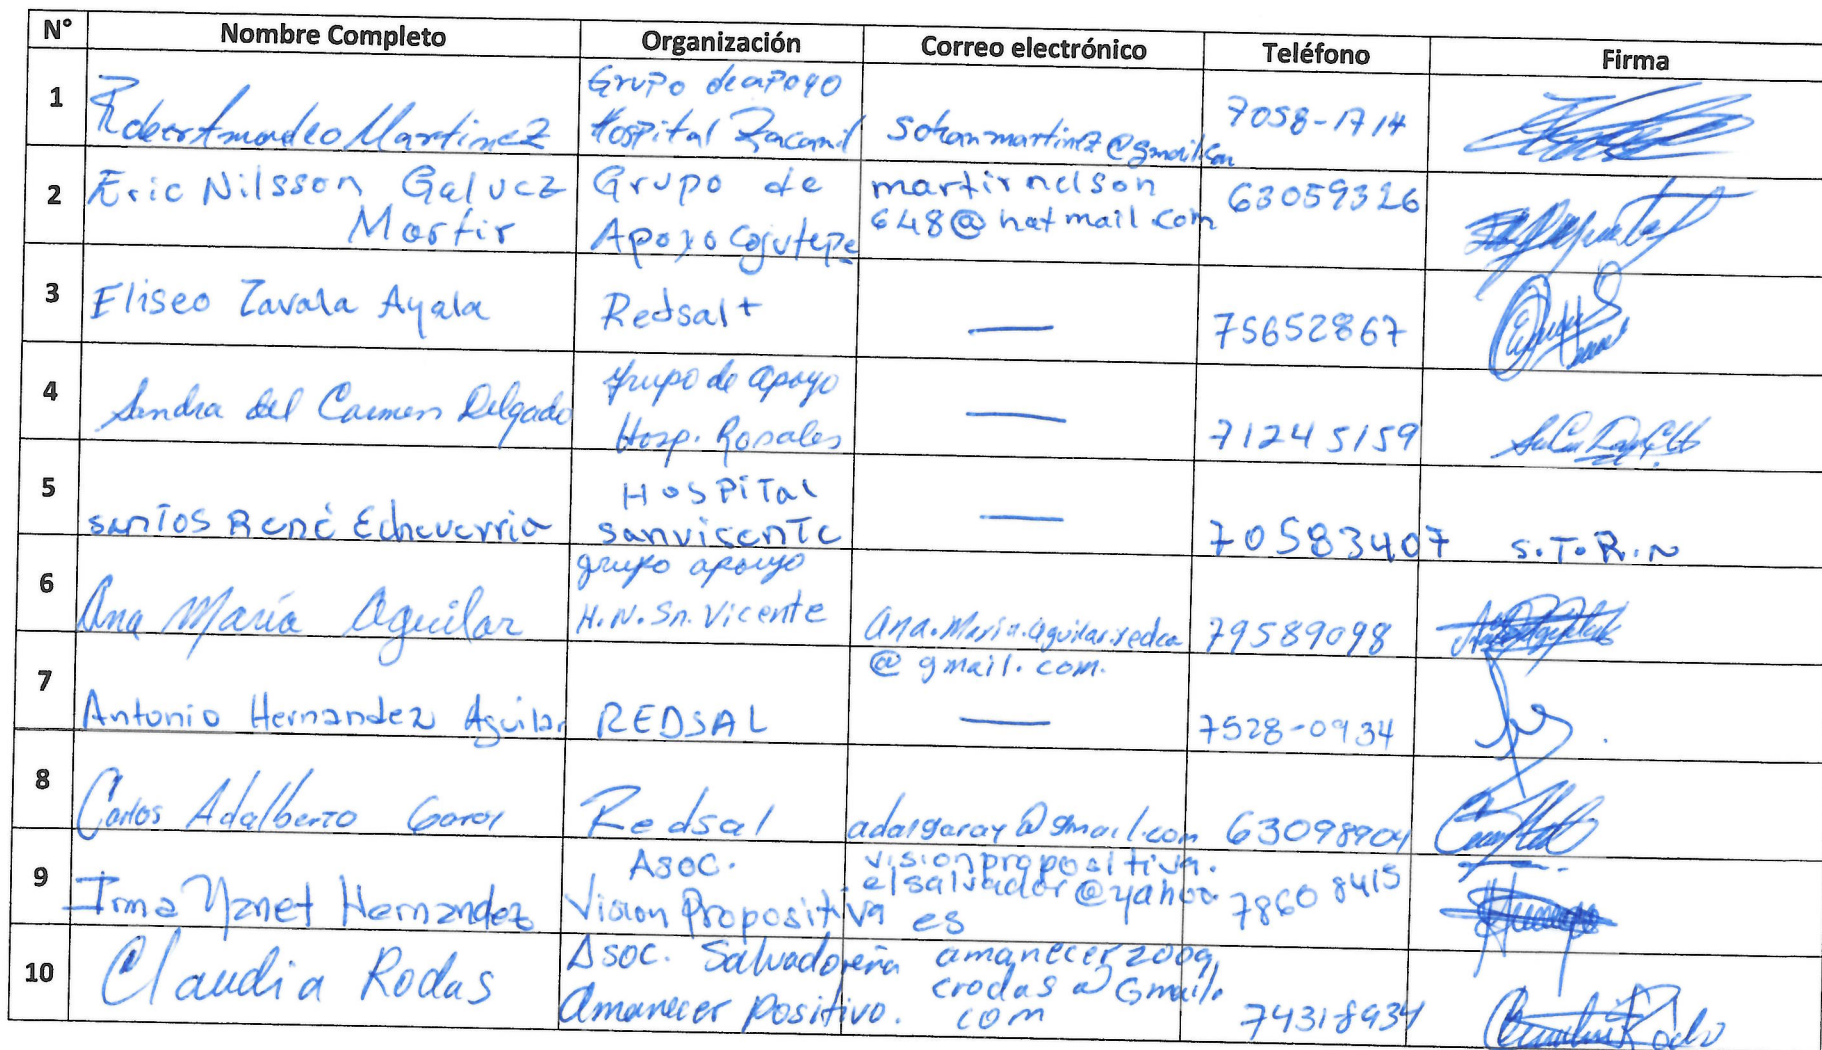 N° Nombre Completo Organización Correo electrónico Teléfono Firma
1 Robert Amadeo Martinez Grupo de apoyo Hospital Zacamil sotanmartinez@gmail.com 7058-1714
2 Eric Nilsson Galvez Martir Grupo de Apoyo Cojutepe martirnelson648@hotmail.com 63059326
3 Eliseo Zavala Ayala Redsal+ — 75652867
4 Sandra del Carmen Delgado grupo de apoyo Hosp. Rosales — 71245159
5 santos René Echeverria HOSPITAL sanvisente — 70583407 S.T.R.N
6 Ana María Aguilar grupo apouyo H.N.Sn. Vicente ana.Maria.aguilar.redca@gmail.com. 79589098
7 Antonio Hernandez Aguilar REDSAL — 7528-0934
8 Carlos Adalberto Redsal adalgaray@gmail.com 63098904
9 Irma Yanet Hernandez Asoc. Vision Propositiva visionpropositiva.elsalvador@yahoo.es 78608415
10 Claudia Rodas Asoc. Salvadoreña Amanecer positivo. amanecer2009crodas@Gmail.com 74318934